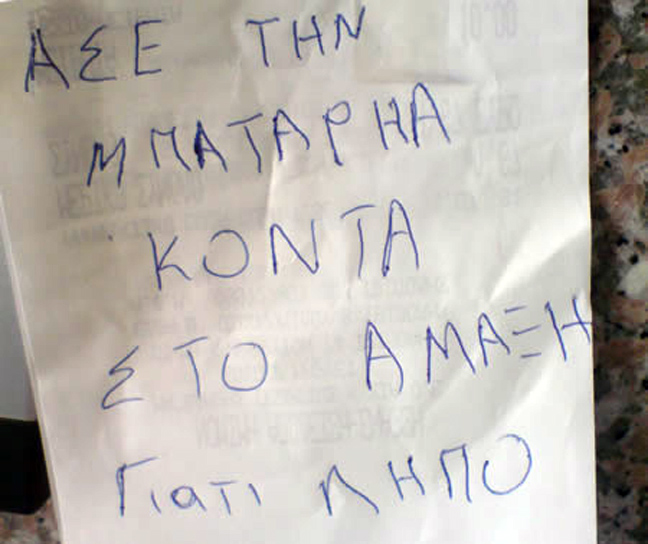 ΑΣΕ ΤΗΝ
ΜΠΑΤΑΡΗΑ
ΚΟΝΤΑ
ΣΤΟ ΑΜΑΞΗ
Γιατι ΛΗΠΟ